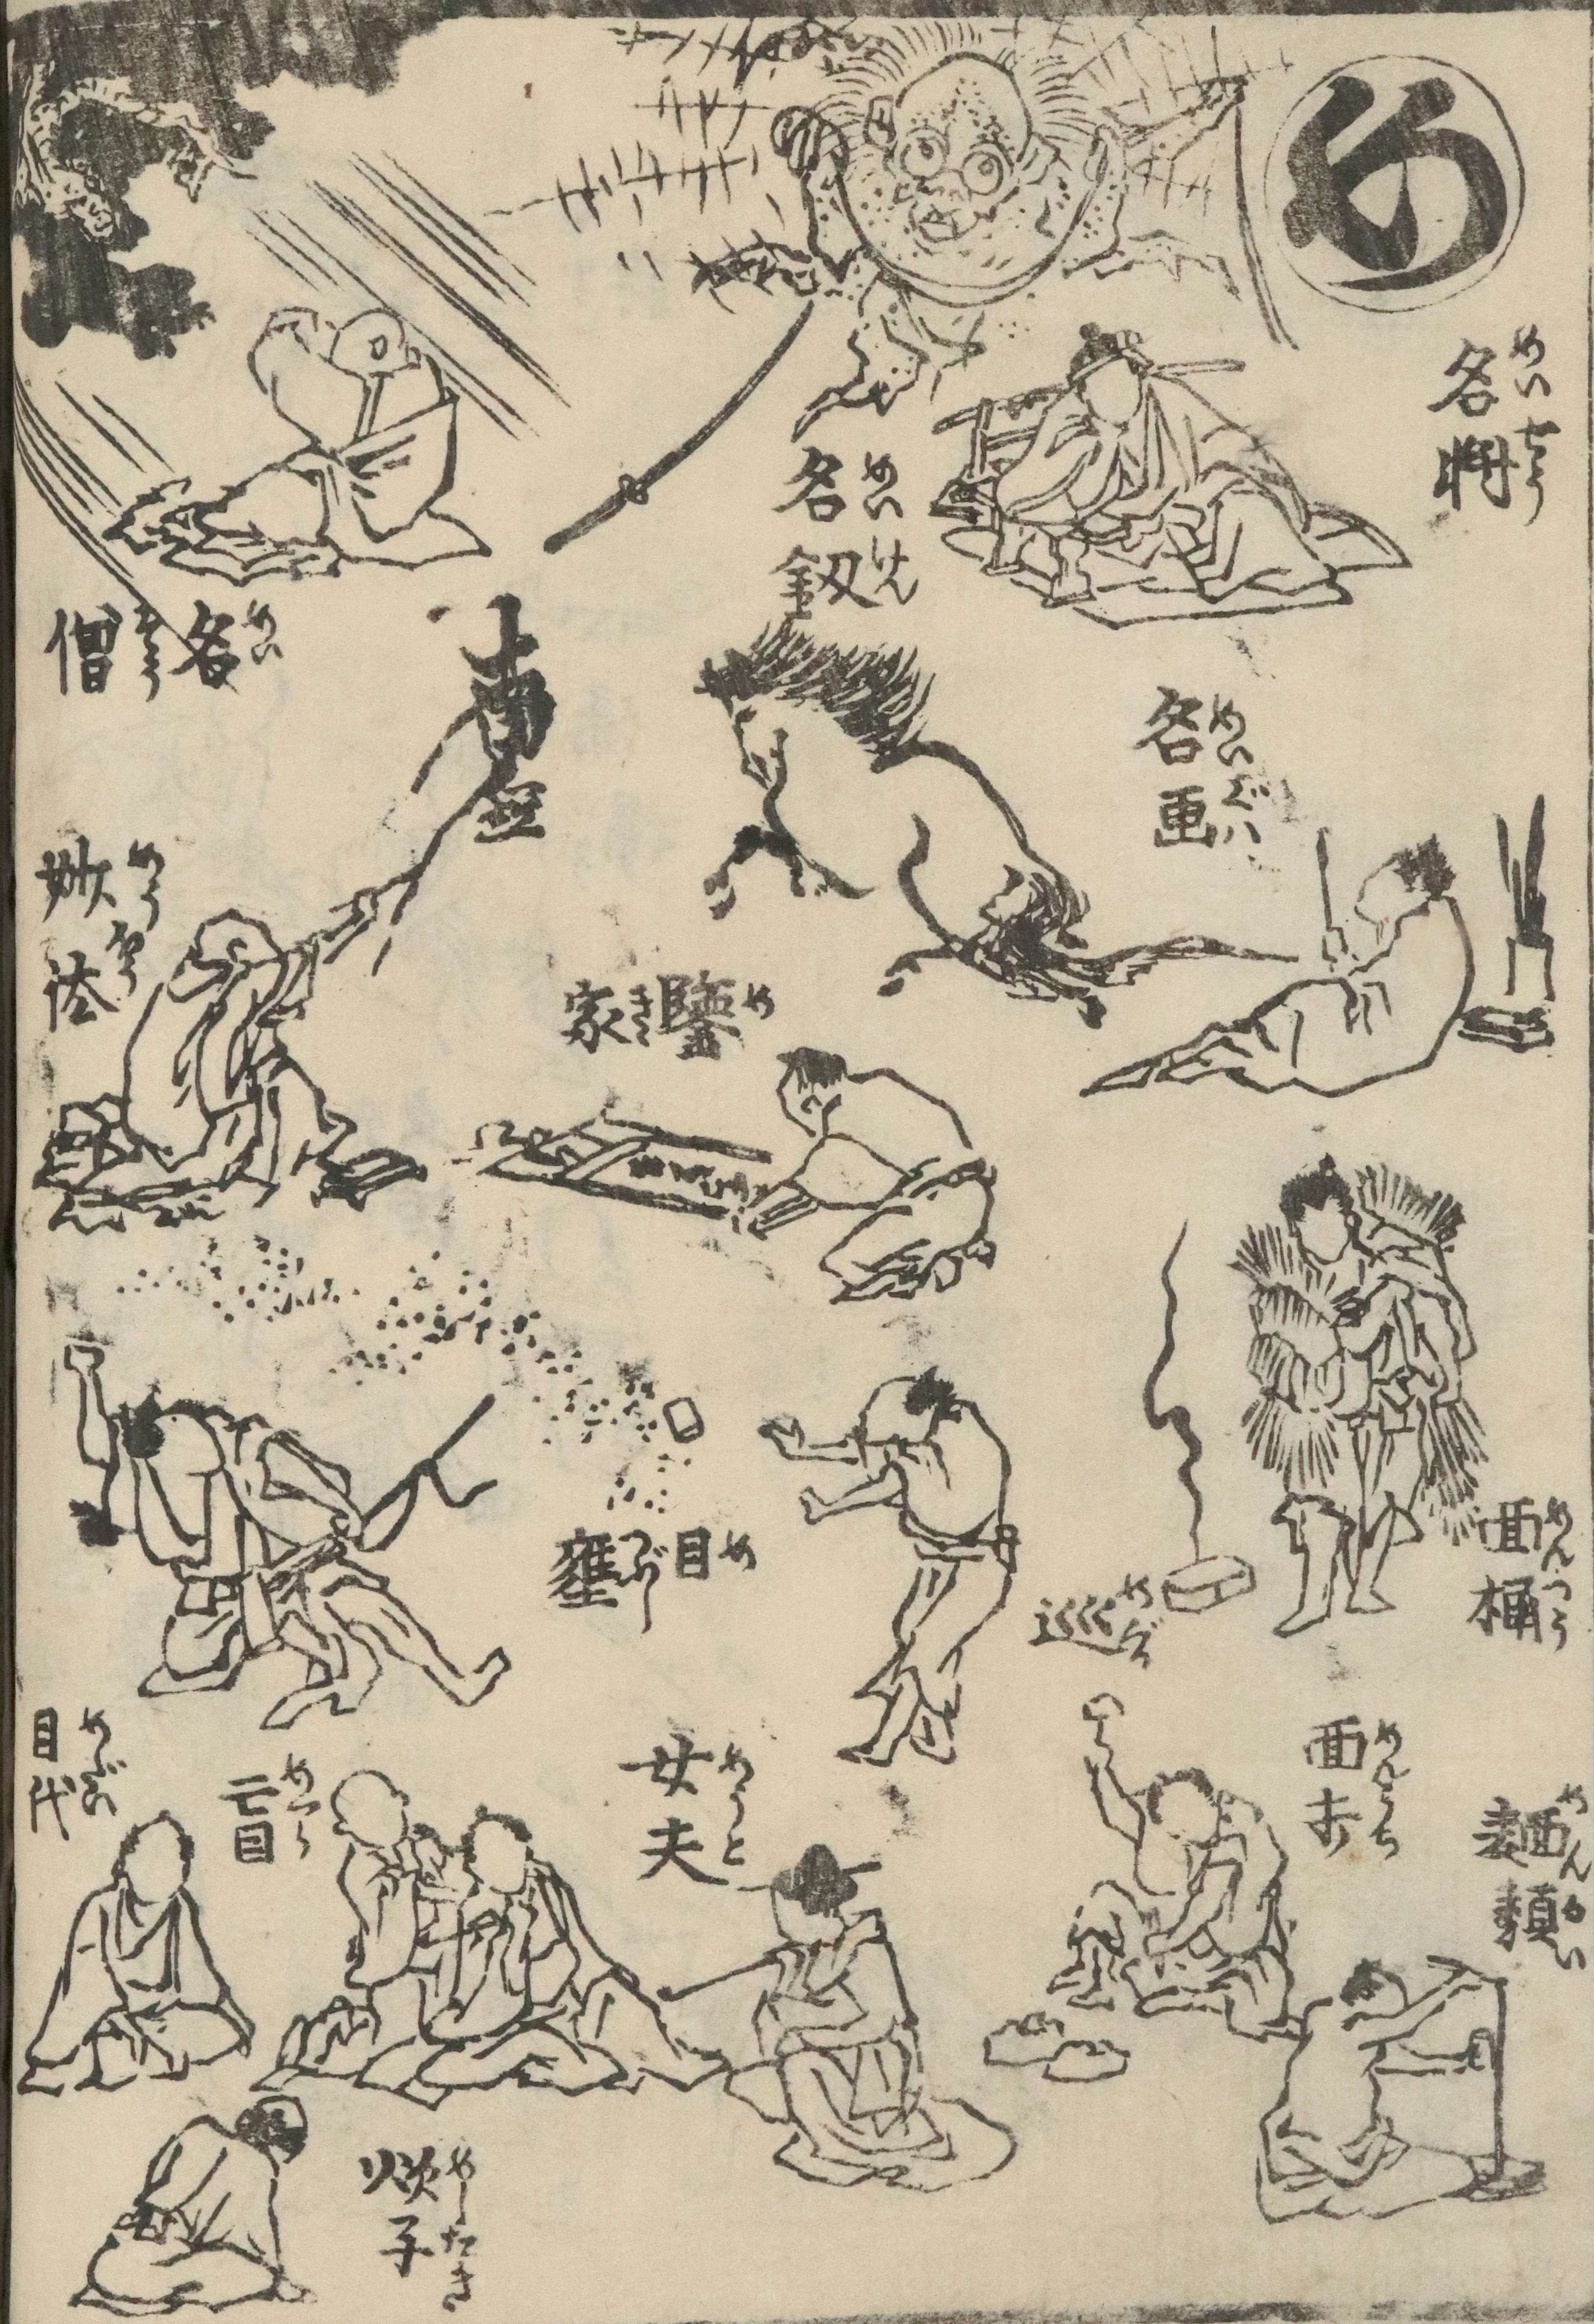 め
名将 めいせう
名釼 めいけん
名僧 めいそう
名画 めいぐハ
南無
妙法 めうほう
鑒家 めきき
面桶 めんつう
巡 めぐる
目壅 めつぶし
面打 めんうち
麺類 めんるい
女夫 めうと
盲 めくら
目代 めじろ
子 めしたき